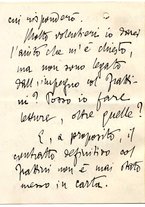 cui risponderò.
Molto volentieri io darei
l'aiuto che m'è chiesto,
ma non sono legato
dall'impegno col Frattini? Posso io fare
letture, oltre quelle?
E, a proposito, il
contratto definitivo col
Frattini non è mai stato
messo in carta.